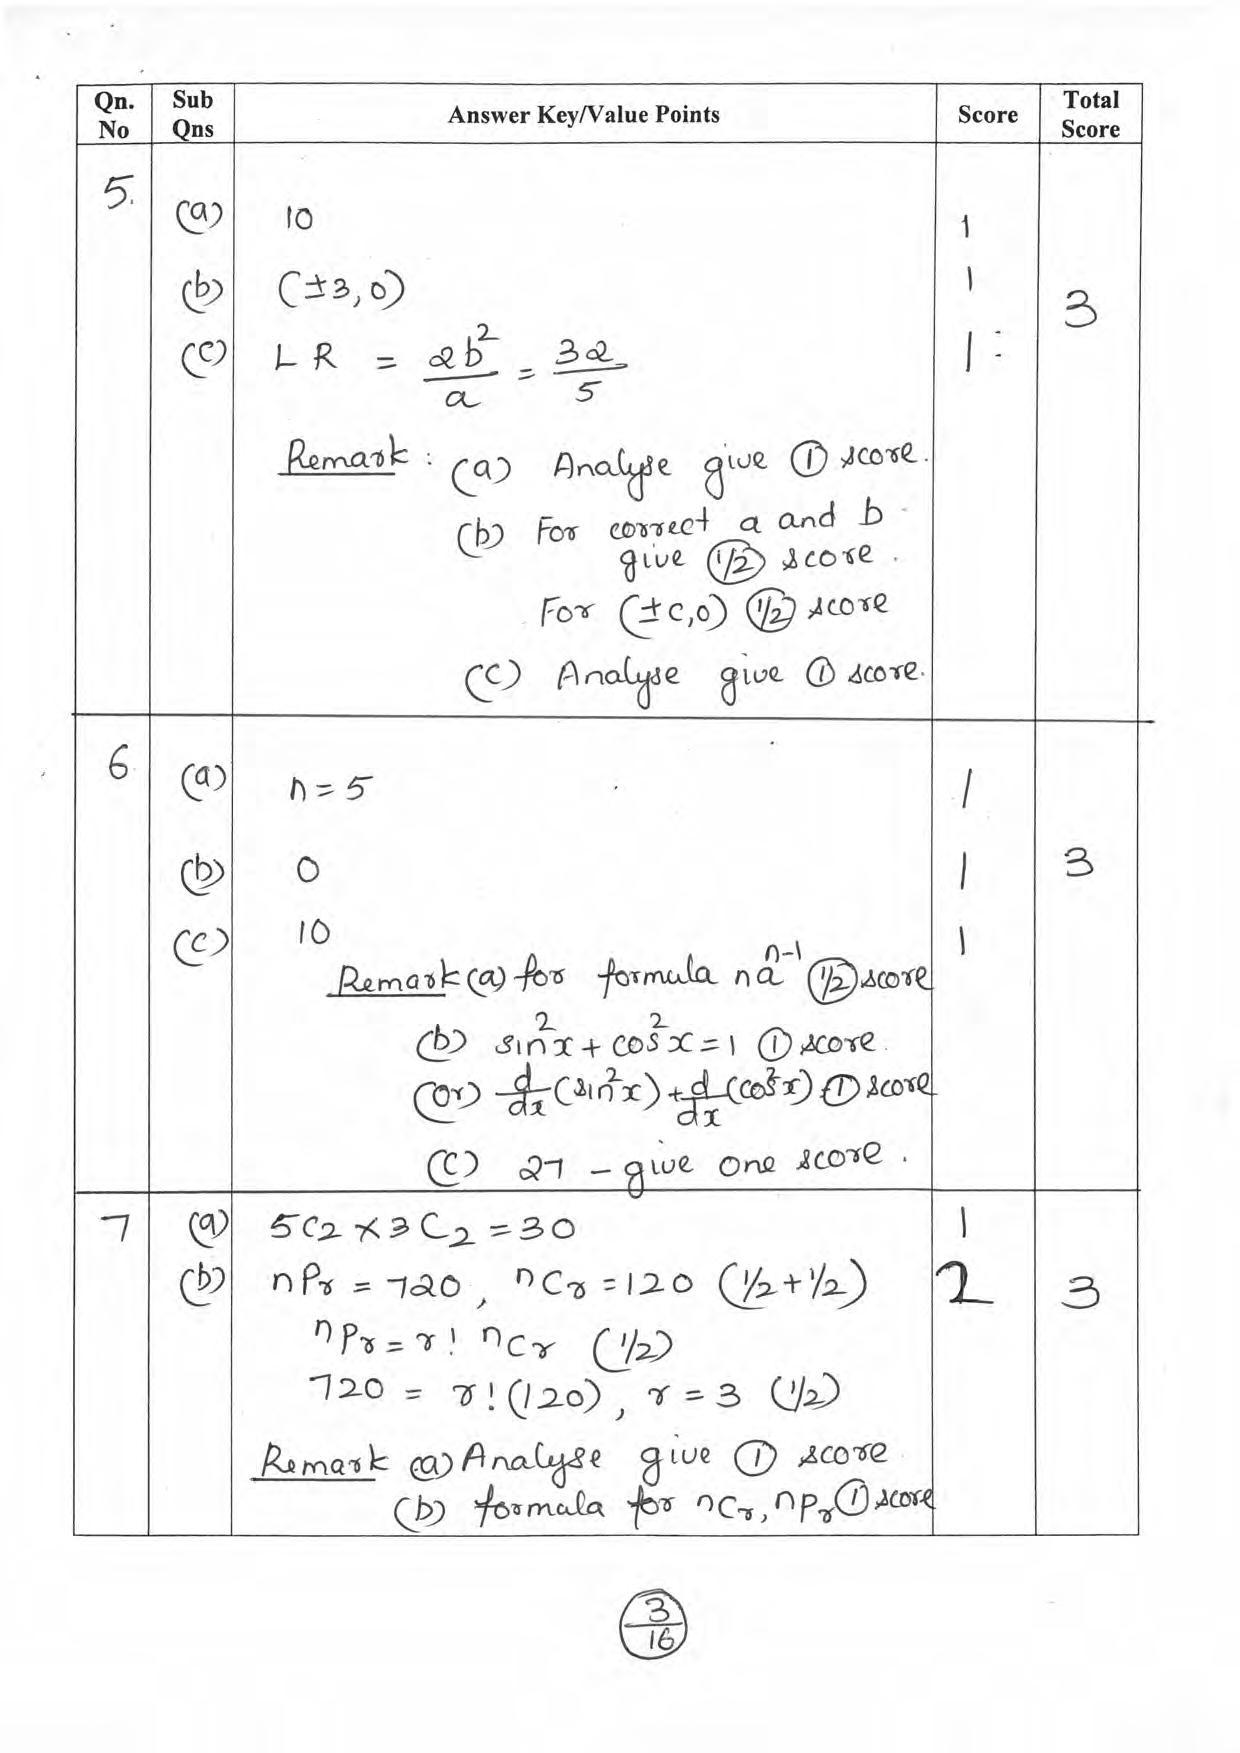 Qn. No Sub Qns Answer Key/Value Points Score Total Score
5. (a) 10 1
(b) (±3,0) 1 3
(c) LR = 2b²/a = 32/5 1
Remark : (a) Analyse give ① score.
(b) For correct a and b
give (1/2) score.
For (±c,0) (1/2) score
(c) Analyse give ① score.
6 (a) n = 5 1
(b) 0 1 3
(c) 10 1
Remark (a) for formula naⁿ⁻¹ (1/2) score
(b) sin²x + cos²x = 1 ① score.
(or) d/dx (sin²x) + d/dx (cos²x) ① score
(c) 27 – give one score.
7 (a) 5C2 × 3C2 = 30 1
(b) nPr = 720, nCr = 120 (1/2+1/2) 2 3
nPr = r! nCr (1/2)
720 = r! (120), r = 3 (1/2)
Remark (a) Analyse give ① score
(b) formula for nCr, nPr ① score
3/16